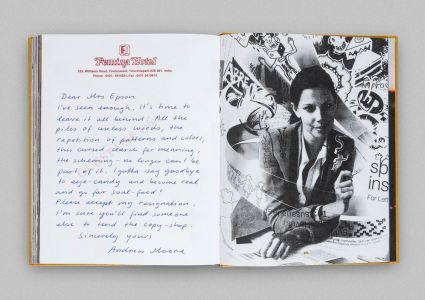 Femina Hotel
Dear Mrs Epson
I've seen enough. It's time to
leave it all behind: All the
piles of useless words, the
repetition of patterns and colors,
this cursed search for meaning,
the scheming – no longer can I be
part of it. I gotta say goodbye
to eye-candy and become real
and go for soul-food!
Please accept my resignation.
I'm sure you'll find someone
else to tend the copy-shop.
Sincerely yours
Andrew Moore
sp
ins
For Len